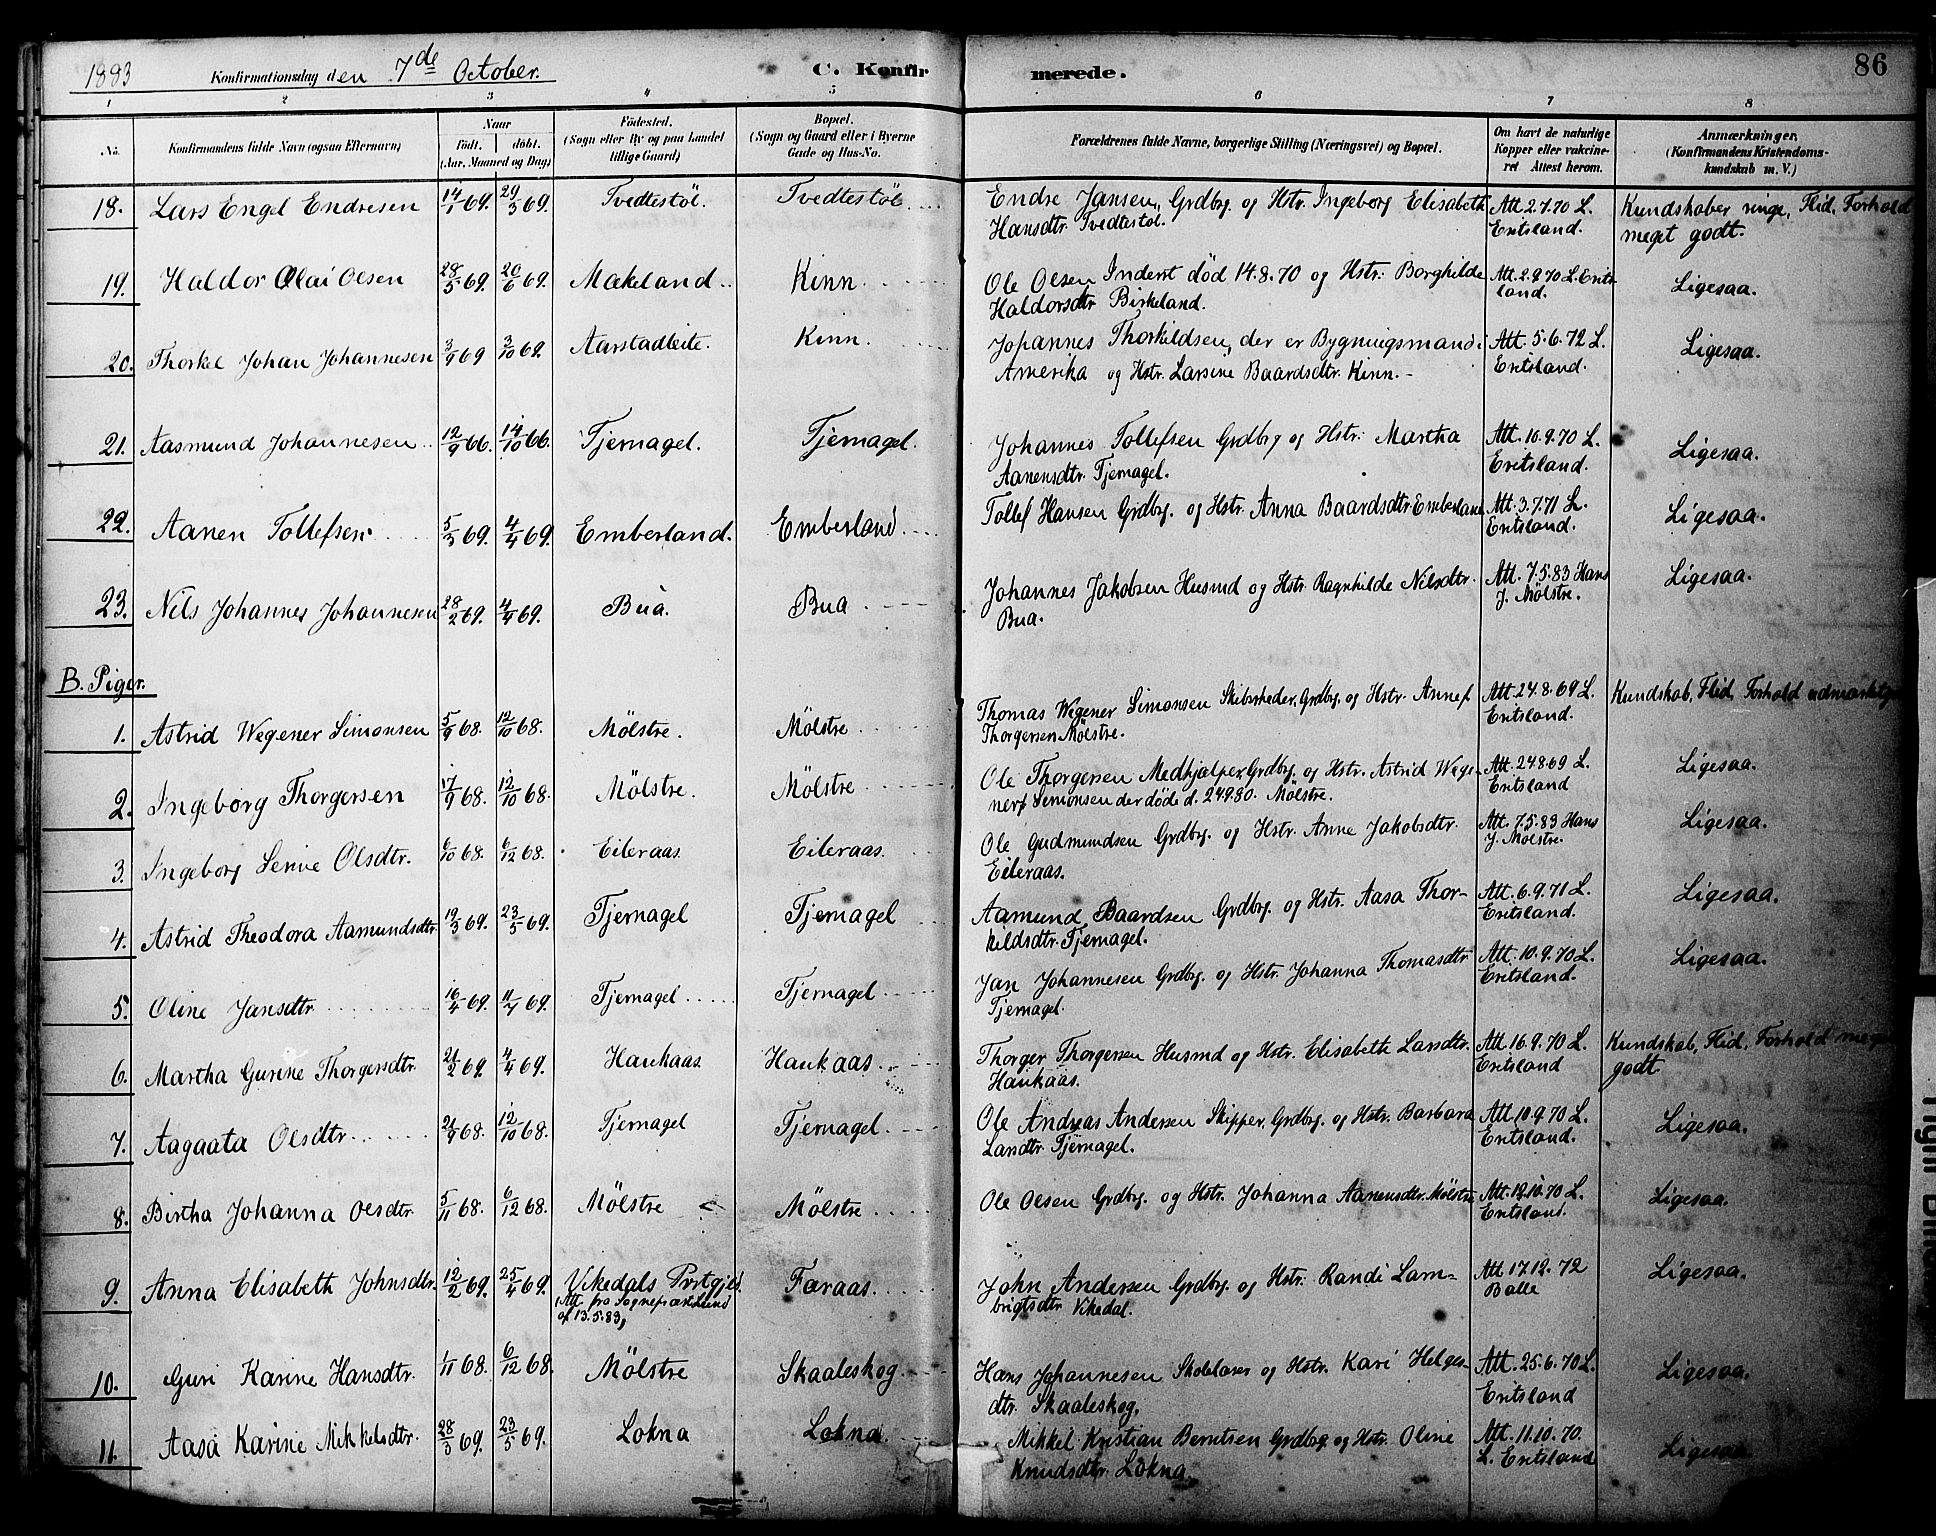 1883 Konfirmationsdag den 7de October. C. Konfirmerede. 86
1 2 3 4 5 6 7 8
No. Konfirmandens fulde Navn (ogsaa Efternavn) Naar født. døbt. (Aar, Maaned og Dag) Fødested. (Sogn eller By og paa Landet tillige Gaard) Bopæl. (Sogn og Gaard eller i Byerne Gade og Hus-No. Forældrenes fulde Navne, borgerlige Stilling (Næringsvei) og Bopæl. Om havt de naturlige Kopper eller vakcineret Attest herom. Anmærkninger. (Konfirmandens Kristendomskundskab m. V.)
18. Lars Engel Endresen 14/1 69. 29/3 69. Tvedtestöl Tvedtestöl Endre Jansen, Grdbrg. og Hstr. Ingeborg Elisabeth Att. 2.7.70 L. Kundskaber ringe, Flid, Forhold
Hansdtr. Tvedtestöl. Eritsland. meget godt.
19. Haldor Olai Olsen 28/5 69. 20/6 69. Mækeland Kinn Ole Olsen Inderst død 14.8.70 og Hstr: Borghilde Att. 2.9.70 L. Erits Ligesaa.
Haldorsdtr Birkeland. land.
20. Thorkel Johan Johannesen 3/9 69 3/10 69. Aarstadleite. Kinn. Johannes Thorkildsen, der er Bygningsmand i Att. 5.6.72 L. Ligesaa.
Amerika og Hstr. Larsine Baardsdtr. Kinn. Eritsland.
21. Aasmund Johannesen 12/9 66. 14/10 66. Tjernagel. Tjernagel. Johannes Tollefsen Grdbrg og Hstr: Martha Att. 10.9.70 L. Ligesaa.
Aanensdtr. Tjernagel. Eritsland.
22. Aanen Tollefsen 5/3 69. 4/4 69. Emberland. Emberland Tollef Hansen Grdbrg. og Hstr. Anna Baardsdtr Emberland Att. 3.7.71 L. Ligesaa.
Eritsland.
23. Nils Johannes Johannesen 28/2 69. 4/4 69. Bua. Bua Johannes Jakobsen Husmd og Hstr. Ragnhilde Nilsdtr. Att. 7.5.83 Hans Ligesaa.
Bua. J. Mölstre.
B. Piger.
1. Astrid Wegener Simonsen 5/9 68. 12/10 68. Mölstre. Mölstre Thomas Wegener Simonsen Skibsrheder, Grdbrg. og Hstr. Anne f. Att. 24.8.69 L. Kundskab, Flid, Forhold
Thorgersen Mölstre. Eritsland.
2. Ingeborg Thorgersen 17/9 68. 12/10 68. Mölstre. Mölstre Ole Thorgersen Medhjælper, Grdbrg. og Hstr. Astrid Wege- Att. 24.8.69 L. Ligesaa.
ner f. Simonsen der døde d. 24.9.80. Mölstre. Eritsland
3. Ingeborg Serine Olsdtr. 6/10 68. 6/12 68. Eileraas. Eileraas. Ole Gudmundsen Grdbrg. og Hstr. Anne Jakobsdtr. Att. 7.5.83 Hans Ligesaa.
Eileraas. J. Mölstre.
4. Astrid Theodora Aamundsdtr. 19/3 69. 23/5 69. Tjernagel Tjernagel Aamund Baardsen Grdbrg. og Hstr. Aasa Thor- Att. 6.9.71 L. Ligesaa.
kildsdtr. Tjernagel. Eritsland.
5. Oline Jansdtr 16/4 69. 11/7 69. Tjernagel Tjernagel Jan Johannesen Grdbrg og Hstr. Johanna Thomasdtr Att. 10.9.70 L. Ligesaa.
Tjernagel. Eritsland.
6. Martha Gurine Thorgersdtr. 21/2 69. 4/4 69. Haukaas. Haukaas Thorger Thorgersen Husmd og Hstr. Elisabeth Larsdtr. Att. 16.9.70 L. Kundskab, Flid, Forhold meget
Haukaas. Eritsland godt
7. Aagaata Olsdtr. 21/9 68. 12/10 68. Tjernagel Tjernagel Ole Andreas Andersen Skipper, Grdbrg. og Hstr. Barbara Att. 10.9.70 L. Ligesaa.
Larsdtr Tjernagel. Eritsland.
8. Birtha Johanna Olsdtr. 5/11 68. 6/12 68. Mölstre Mölstre Ole Olsen Grdbrg. og Hstr. Johanna Aanensdtr. Mölstre Att. 12.10.70 L. Ligesaa.
Eritsland.
9. Anna Elisabeth Johnsdtr. 12/2 69. 25/4 69. Vikedals Prstgjld. Færaas. John Andersen Grdbrg. og Hstr: Randi Lam- Att 17.12.72 Ligesaa.
(Att. fra Sognepræst Lund brigtsdtr. Vikedal. Balle
af 13.5.83)
10. Guri Karine Hansdtr. 1/11 68. 6/12 68. Mölstre Skaaleskog Hans Johannesen Skolelærer og Hstr. Kari Helges- Att. 25.6.70 L. Ligesaa.
dtr. Skaaleskog. Eritsland
11. Aasa Karine Mikkelsdtr. 28/3 69. 23/5 69. Lokna Lokna Mikkel Kristian Berntsen Grdbrg og Hstr. Oline Att. 11.10.70. Ligesaa
Knudsdtr. Lokna L. Eritsland